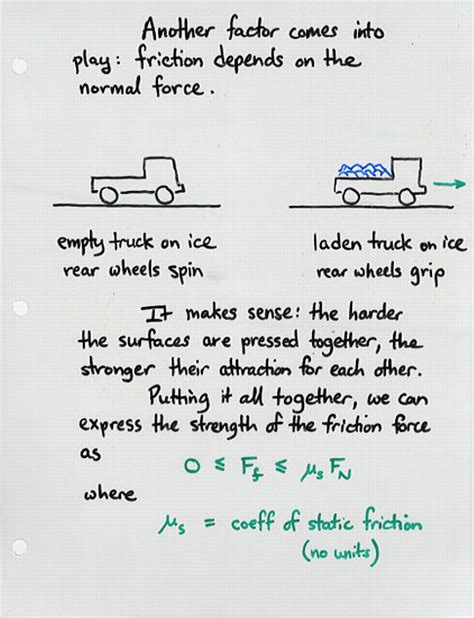 Another factor comes into
play: friction depends on the
normal force.
empty truck on ice
rear wheels spin
laden truck on ice
rear wheels grip
It makes sense: the harder
the surfaces are pressed together, the
stronger their attraction for each other.
Putting it all together, we can
express the strength of the friction force
as
0 ≤ F_f ≤ μ_s F_N
where
μ_s = coeff of static friction
(no units)